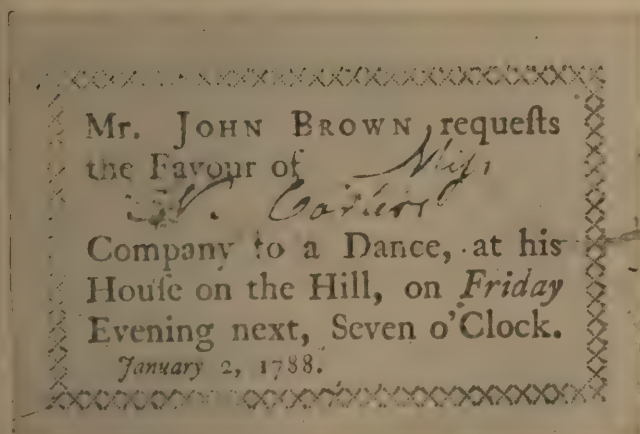 Mr. JOHN BROWN, requeſts
the Favour of Miſs
Company to a Dance, at his
Houſe on the Hill, on Friday
Evening next, Seven o'Clock.
January 2, 1788.